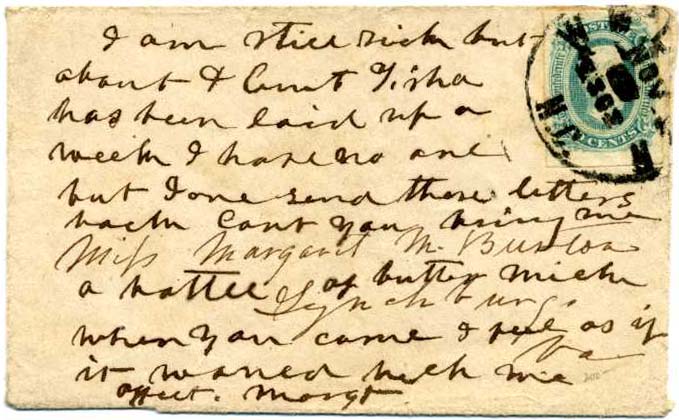 I am still sick but
about & Aunt Tisha
has been laid up a
week I have no one
but I one send these letters
back Cant you bring me
Miss Margaret M. Burton
a bottle of butter milk
Lynchburg
when you come I feel as if
Va
it woned help me
affect. Margt
NOV
CENTS